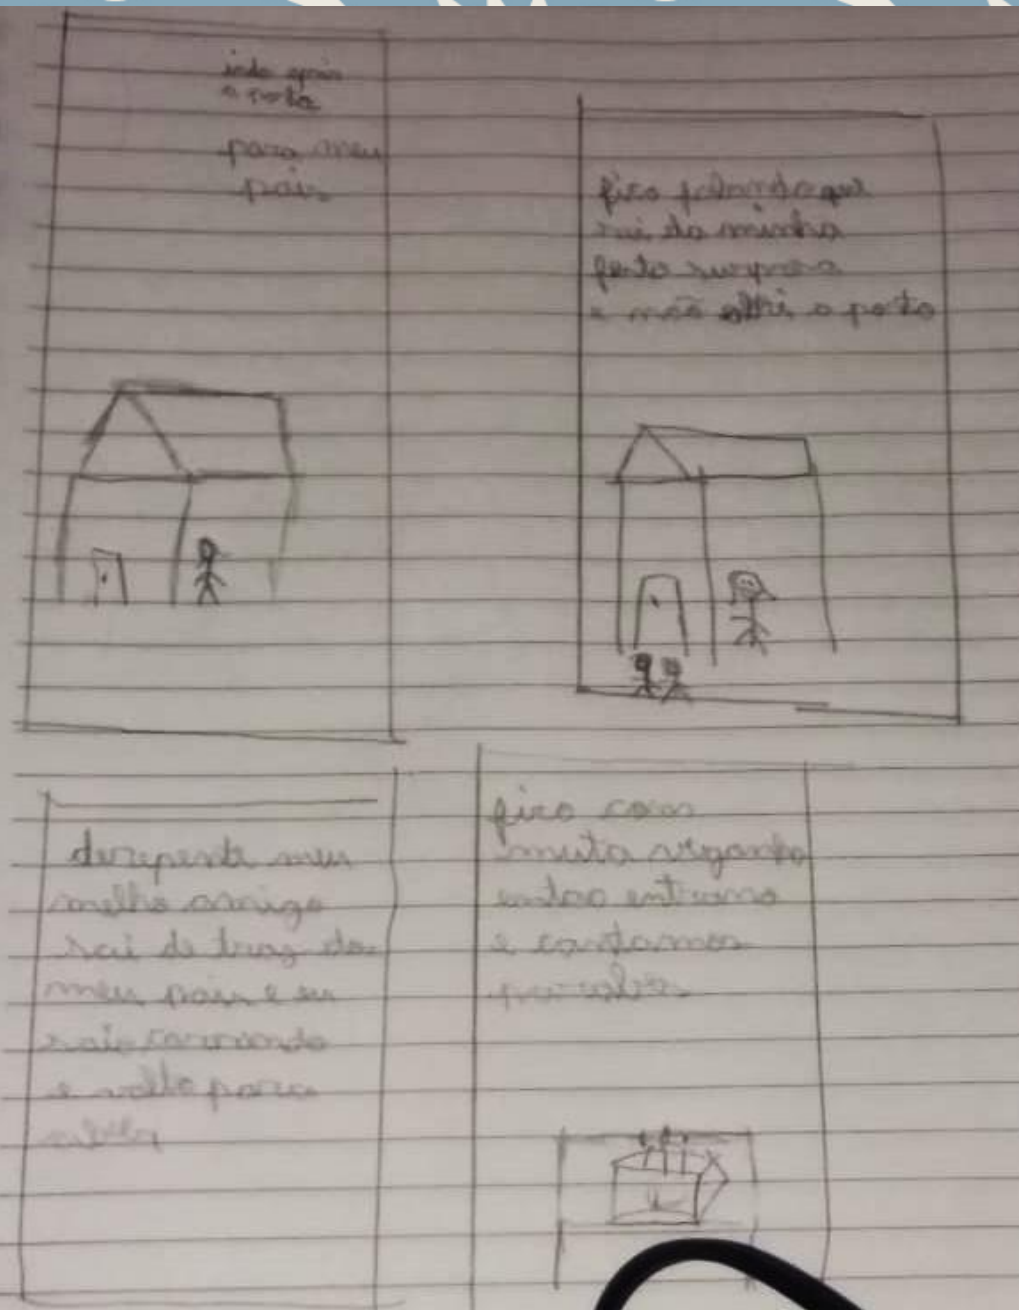 indo abrir
a porta
para meu
pais
fico falando que
sai da minha
festa surpresa
e não abri a porta
derepente meu
melho amigo
sai de traz do
meu pais e eu
saio correndo
e volto para
fico com
muita vergonha
entao entramo
e cantamos